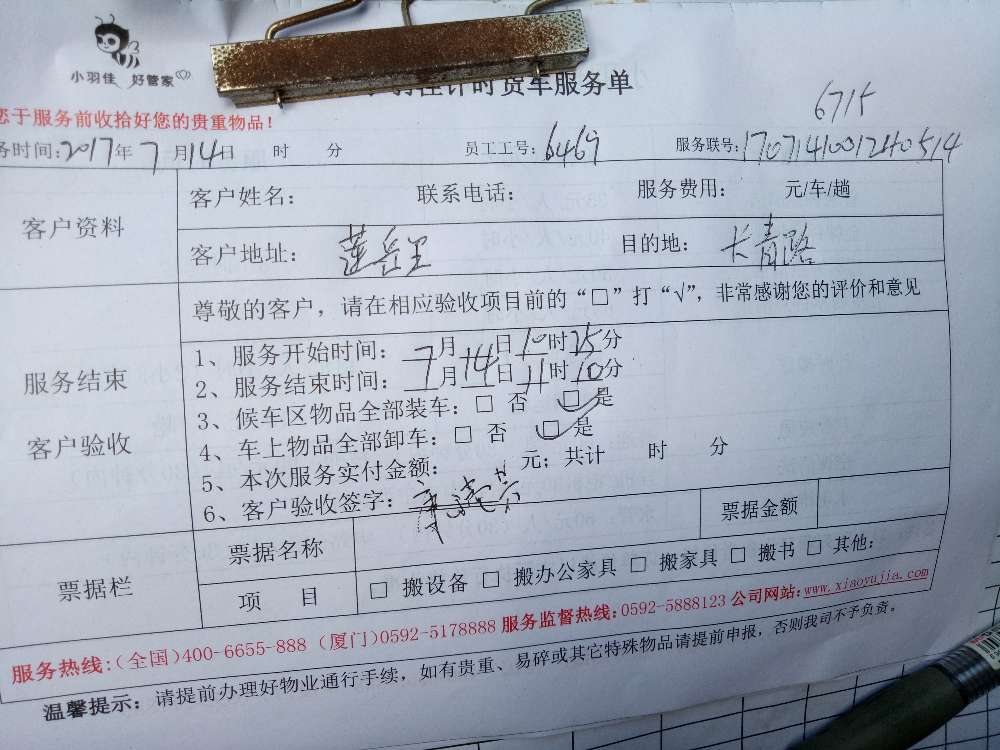 小羽佳 好管家
时货车服务单
您于服务前收拾好您的贵重物品!
6715
务时间:2017年7月14日 时 分 员工工号:6469 服务联号:17071410012140514
客户资料
客户姓名: 联系电话: 服务费用: 元/车/趟
客户地址: 莲岳里 目的地: 长青路
尊敬的客户，请在相应验收项目前的“□”打“√”，非常感谢您的评价和意见
服务结束
客户验收
1、服务开始时间:7月14日10时25分
2、服务结束时间:7月14日11时10分
3、候车区物品全部装车:□ 否 □ 是
4、车上物品全部卸车:□ 否 □ 是
5、本次服务实付金额: 元;共计 时 分
6、客户验收签字:
票据栏
票据名称 票据金额
项 目 □ 搬设备 □ 搬办公家具 □ 搬家具 □ 搬书 □ 其他:
服务热线:(全国)400-6655-888 (厦门)0592-5178888 服务监督热线:0592-5888123 公司网站:www.xiaoyujia.com
温馨提示: 请提前办理好物业通行手续，如有贵重、易碎或其它特殊物品请提前申报，否则我司不予负责。